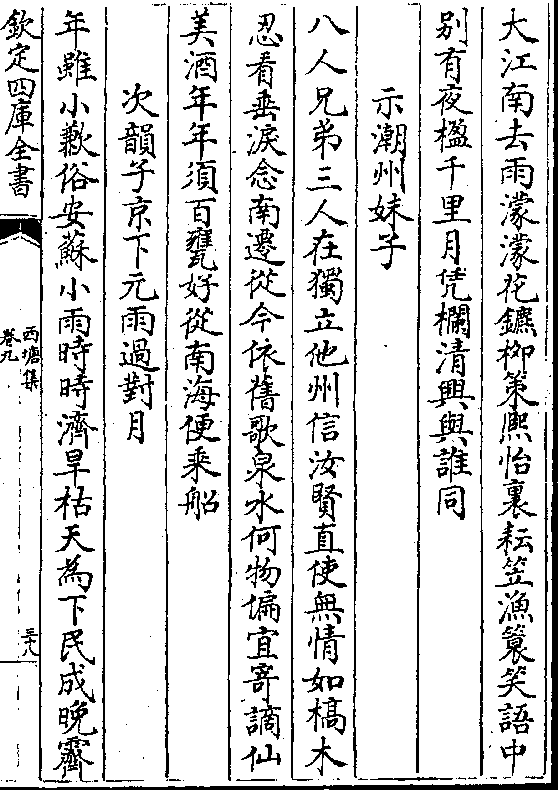 大江南去雨濛濛花鑣栁䇿熈怡裏耘笠漁簑笑語中
别有夜楹千里月凭欄清興與誰同
示潮州妹子
八人兄弟三人在獨立他州信汝賢直使無情如槁木
忍看垂淚念南遷從今依舊歌泉水何物偏宜寄謫仙
美酒年年須百甕好從南海便乘船
次韻子京下元雨過對月
年雖小歉俗安蘇小雨時時濟旱枯天為下民成晚霽
欽定四庫全書
西塘集
卷九
三十八